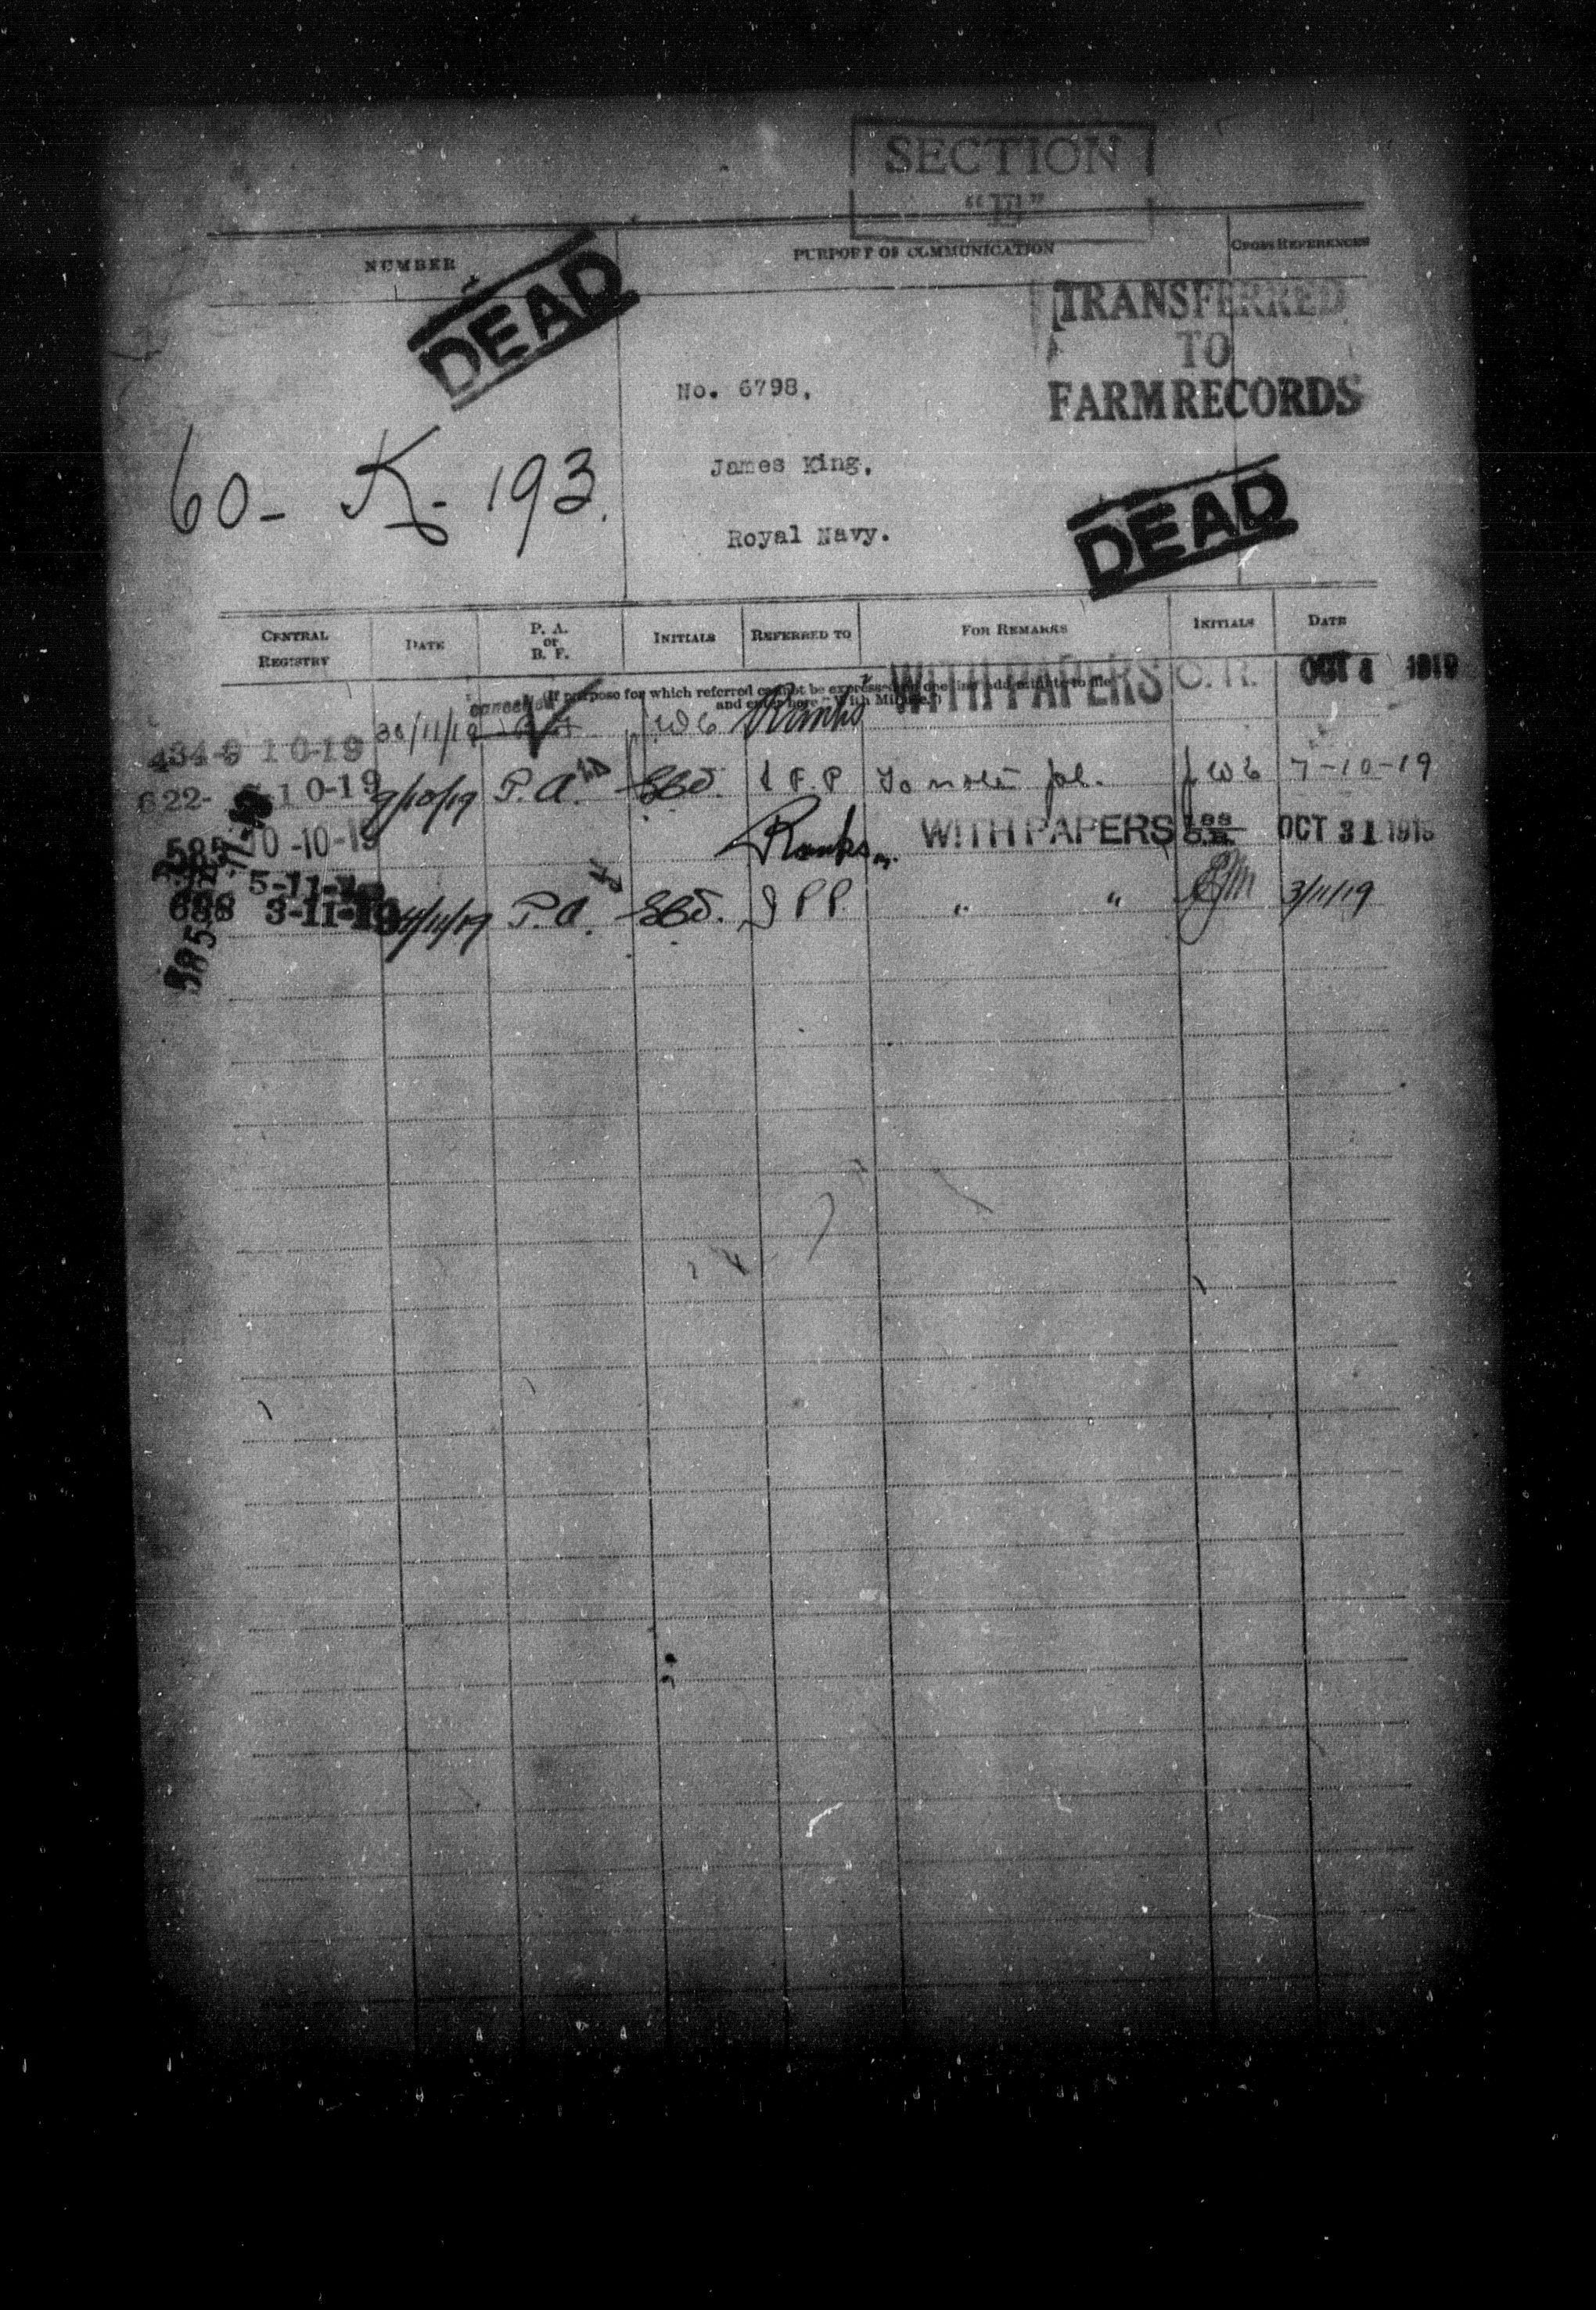 SECTION
"E"
NUMBER PURPORT OF COMMUNICATION CROSS REFERENCES
DEAD
TRANSFERRED
TO
FARM RECORDS
No. 6798,
60- K- 193.
James King,
Royal Navy.
DEAD
CENTRAL REGISTRY DATE P. A. or B. F. INITIALS REFERRED TO FOR REMARKS INITIALS DATE
(If purpose for which referred cannot be expressed in one line add minute to file
and enter here "With Minute.")
WITH PAPERS C. R. OCT 1919
cancelled
434-9 10-19
622- 10-19 9/10/19 P.A. F.P. To note 7-10-19
585 10-10-19 Ranks WITH PAPERS C.R. OCT 31 1919
5-11-19
698 3-11-19 4/11/19 P.A. " " 3/11/19
585